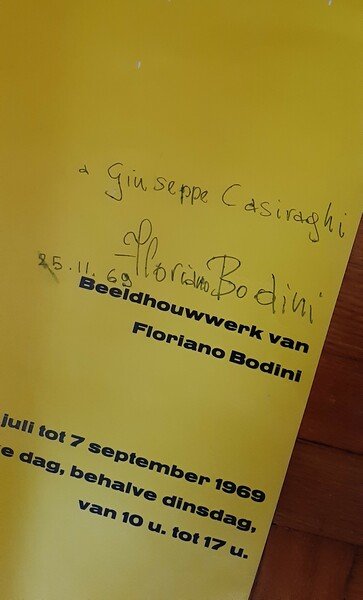 a Giuseppe Casiraghi
Floriano Bodini
25.11.69
Beeldhouwwerk van
Floriano Bodini
juli tot 7 september 1969
e dag, behalve dinsdag,
van 10 u. tot 17 u.